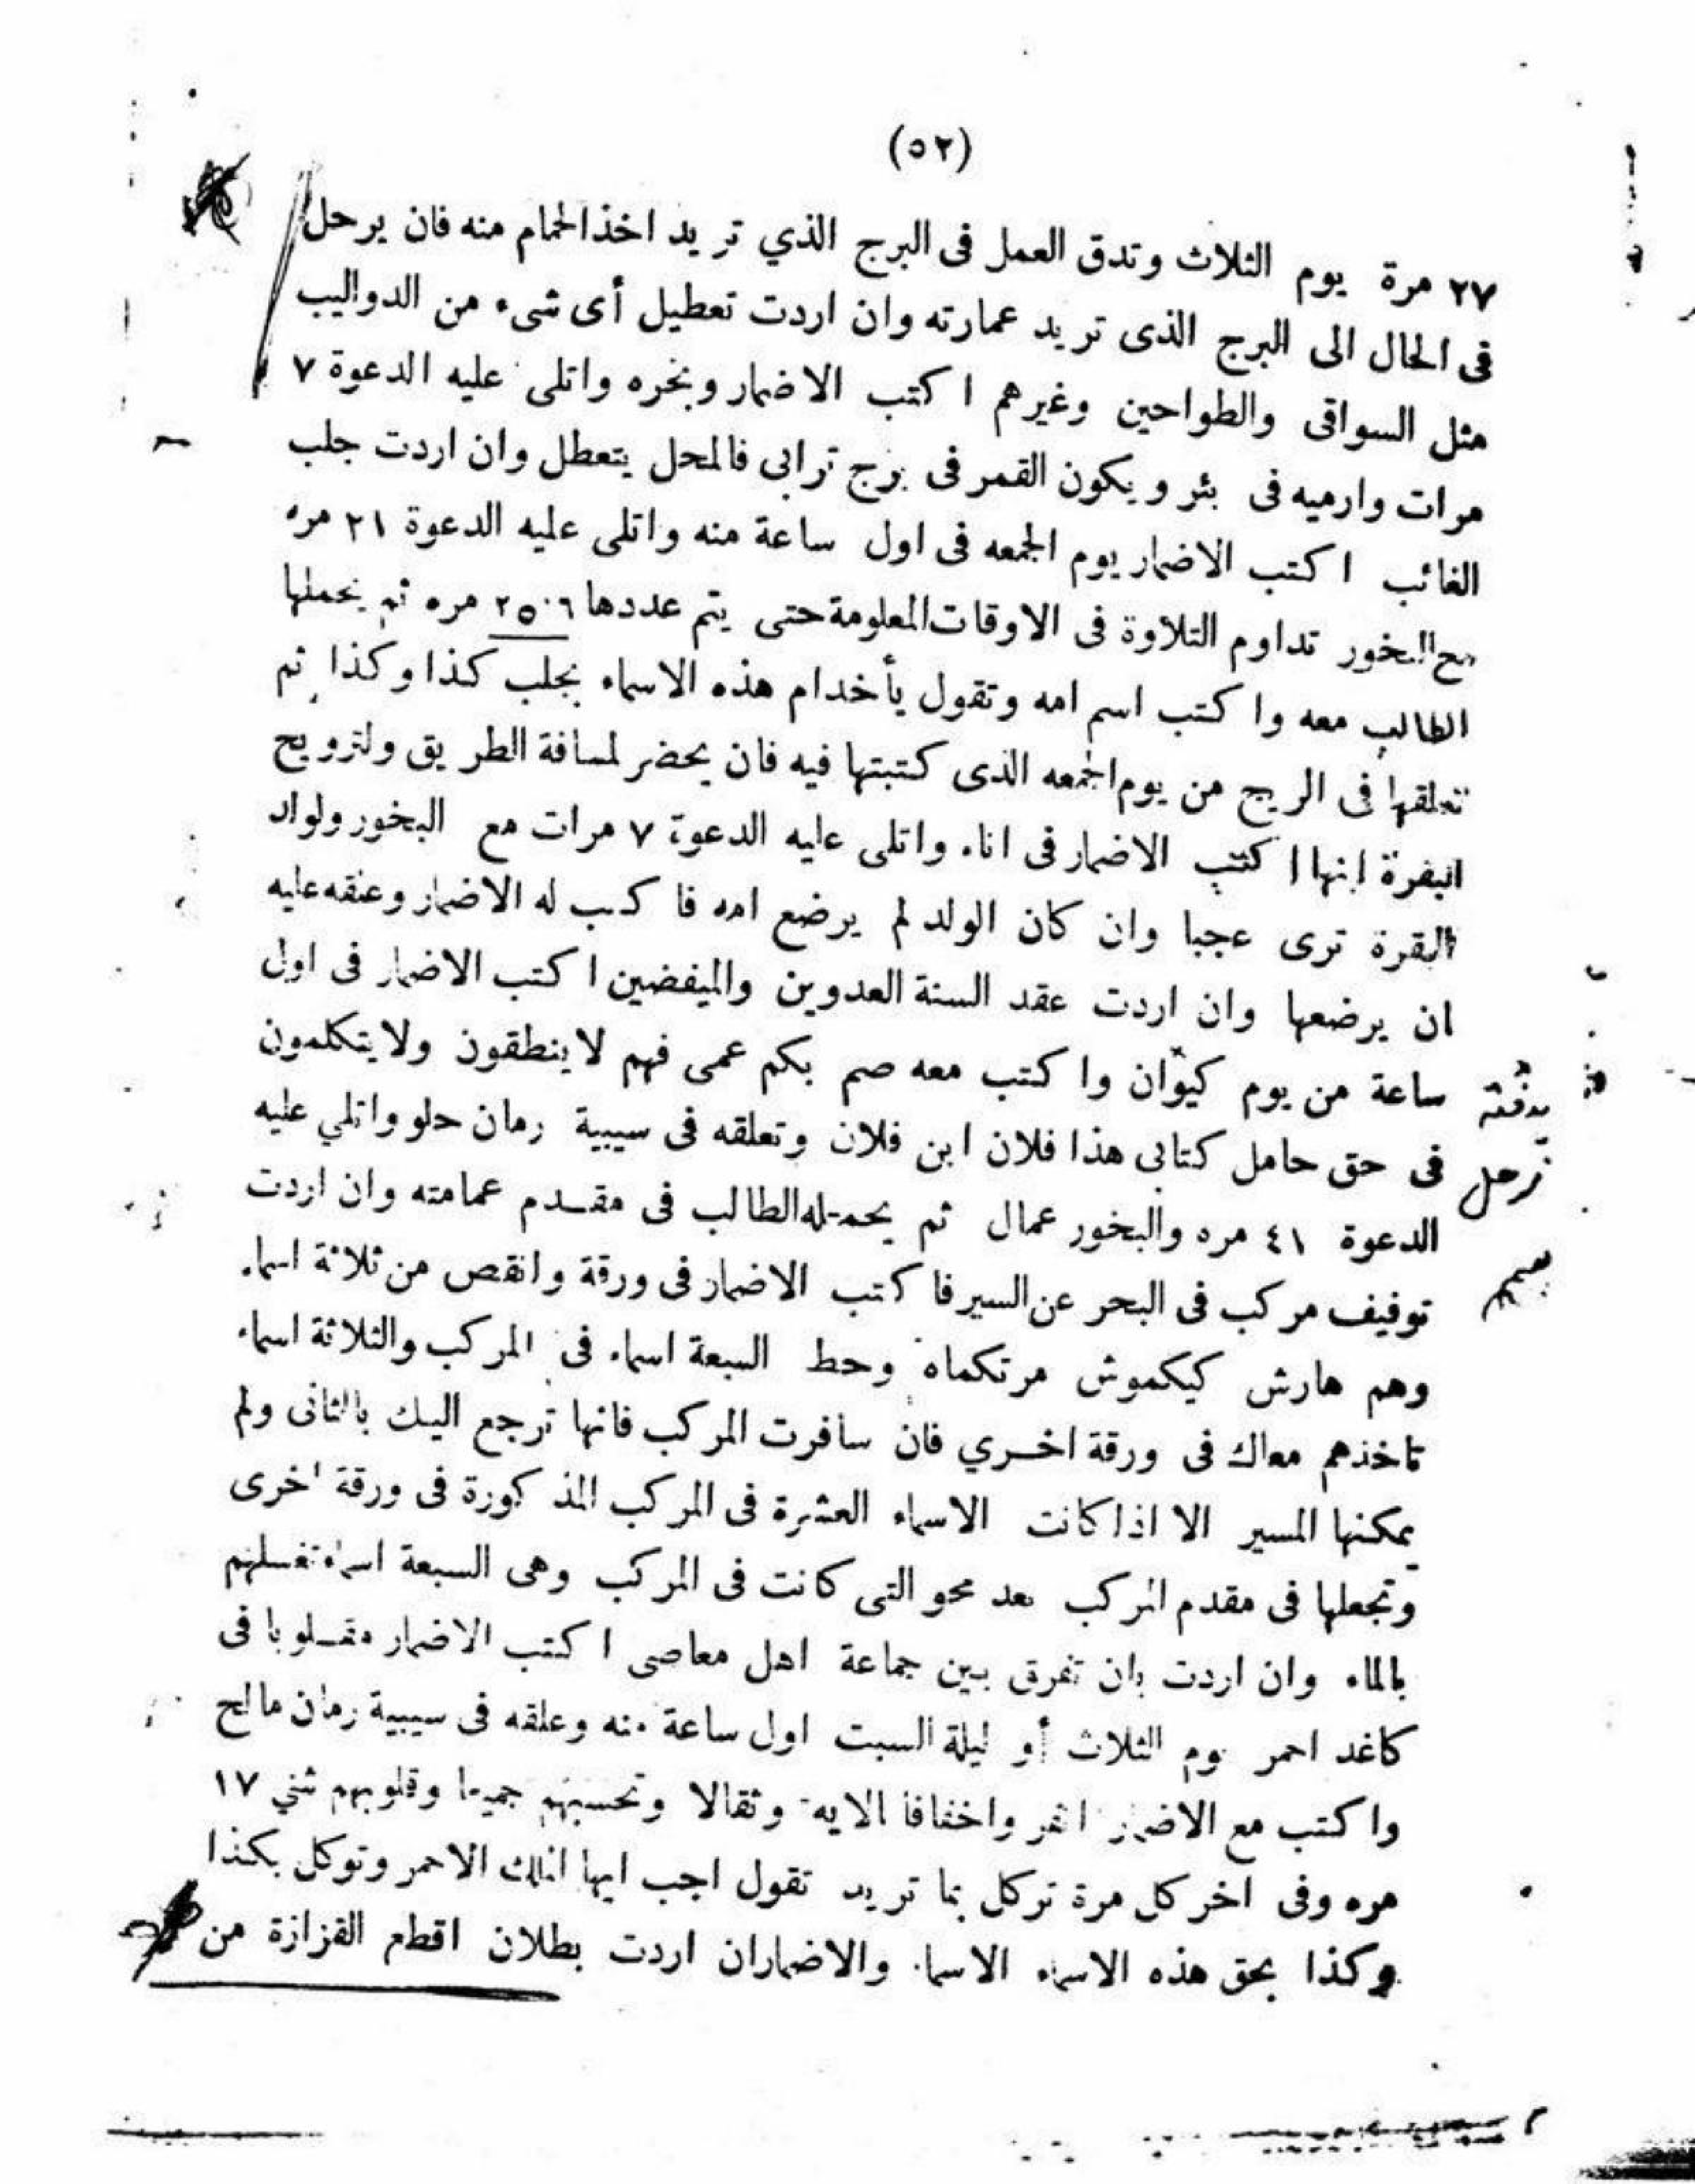 (٥٢)
٢٧ مرة يوم الثلاث وتدق العمل فى البرج الذي تريد اخذ الحمام منه فان يرحل
فى الحال الى البرج الذى تريد عمارته وان اردت تعطيل أى شىء من الدواليب
مثل السواقى والطواحين وغيرهم اكتب الاضمار وبخره واتلى عليه الدعوة ٧
مرات وارميه فى بئر ويكون القمر فى برج ترابى فالمحل يتعطل وان اردت جلب
الغائب اكتب الاضمار يوم الجمعه فى اول ساعة منه واتلى عليه الدعوة ٢١ مره
مع البخور تداوم التلاوة فى الاوقات المعلومة حتى يتم عددها ٢٥٠٦ مره ثم يحملها
الطالب معه واكتب اسم امه وتقول يأخدام هذه الاسماء بجلب كذا وكذا ثم
تعلقها فى الريح من يوم الجمعه الذى كتبتها فيه فان يحضر لمسافة الطريق ولترويح
البقرة ابنها اكتب الاضمار فى اناء واتلى عليه الدعوة ٧ مرات مع البخور ولواد
البقرة ترى عجبا وان كان الولد لم يرضع امه فاكتب له الاضمار وعنقه عليه
ان يرضعها وان اردت عقد السنة العدوين والمبغضين اكتب الاضمار فى اول
ساعة من يوم كيوان واكتب معه صم بكم عمى فهم لا ينطقون ولا يتكلمون
فى حق حامل كتابى هذا فلان ابن فلان وتعلقه فى سيبية رمان حلو واتلي عليه
زحل
الدعوة ٤١ مره والبخور عمال ثم يحمله الطالب فى مقدم عمامته وان اردت
توفيف مركب فى البحر عن السير فاكتب الاضمار فى ورقة وانقص من ثلاثة اسماء
وهم هارش كيكموش مرتكماه وحط السبعة اسماء فى المركب والثلاثة اسماء
تاخذهم معاك فى ورقة اخري فان سافرت المركب فانها ترجع اليك بالثانى ولم
يمكنها المسير الا اذا كانت الاسماء العشرة فى المركب المذكورة فى ورقة اخرى
وتجعلها فى مقدم المركب بعد محو التى كانت فى المركب وهى السبعة اسماء تغسلهم
بالماء وان اردت بان تفرق بين جماعة اهل معاصى اكتب الاضمار مقلوبا فى
كاغد احمر يوم الثلاث أو ليلة السبت اول ساعة منه وعلقه فى سيبية رمان مالح
واكتب مع الاضمار انفروا خفافا الايه وثقالا وتحسبهم جميعا وقلوبهم شتي ١٧
مره وفى اخر كل مرة توكل بما تريد تقول اجب ايها الملك الاحمر وتوكل بكذا
وكذا بحق هذه الاسماء الاسما والاضماران اردت بطلان اقطع القزازة من